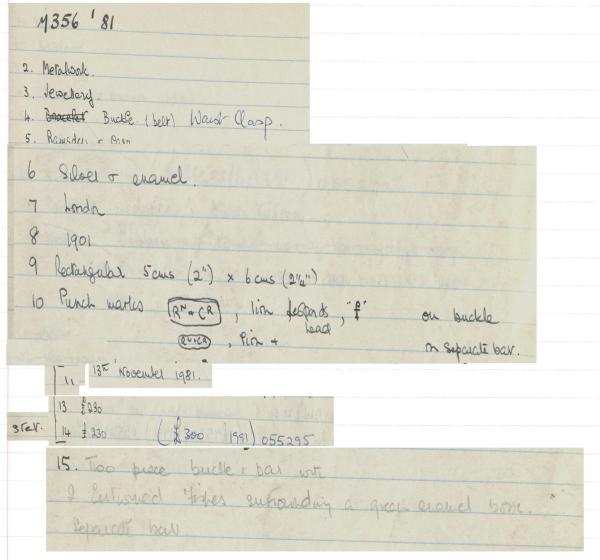 M356 '81
2. Metalwork.
3. Jewellery.
4. Bracelet Buckle (belt) Waist Clasp.
5. Ramsden &
6 Silver & enamel.
7 London
8 1901
9 Rectangular 5cms (2") x 6cms (2¼")
10 Punch marks RN & CR, lion leopards head, "f" on buckle
RN&CR, lion + on separate bar.
11 13th November 1981."
13 £230
14 £230 (£300 1991) 055295
15. Two piece buckle & bar with
2 Entwined fishes surrounding a green enamel
Separate bar.